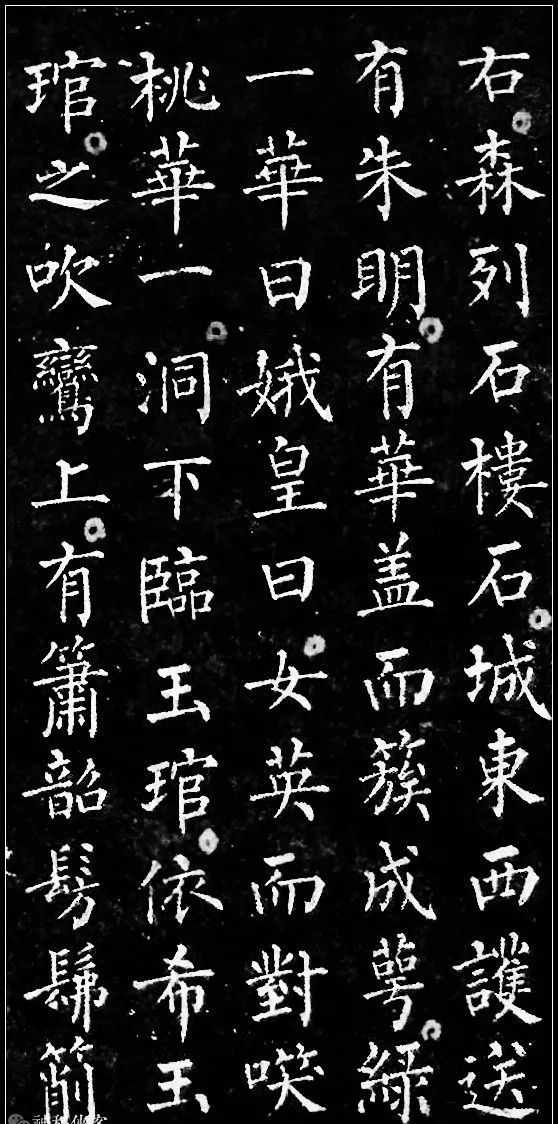 右森列石樓石城東西護送
有朱明有華盖而簇成萼緑
一華曰娥皇曰女英而對㗛
桃華一洞下臨玉琯依希玉
琯之吹鸞上有簫韶髣髴箾